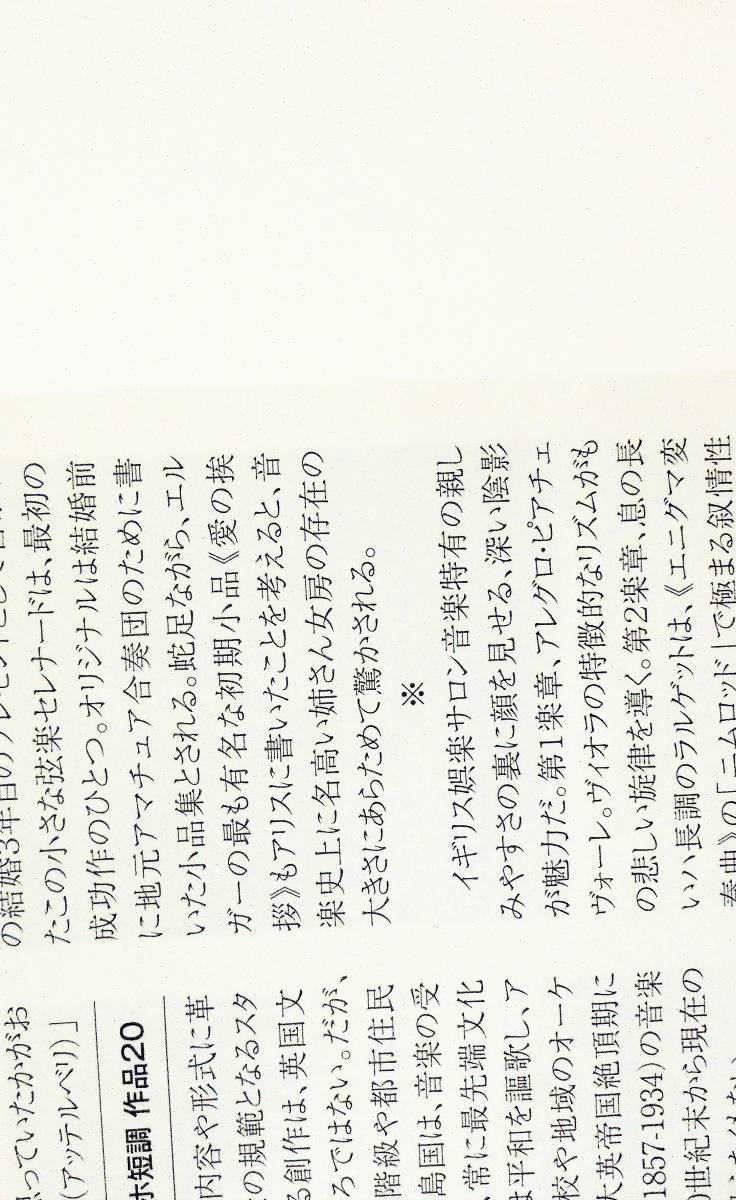 っていたかがお
(アッテルベリ)」
ホ短調 作品20
内容や形式に革
の規範となるスタ
る創作は、英国文
ろではない。だが、
階級や都市住民
島国は、音楽の受
、常に最先端文化
は平和を謳歌し、ア
校や地域のオーケ
大英帝国絶頂期に
1857-1934)の音楽
世紀末から現在の
の結婚3年目のプレゼントとして
たこの小さな弦楽セレナードは、最初の
成功作のひとつ。オリジナルは結婚前
に地元アマチュア合奏団のために書
いた小品集とされる。蛇足ながら、エル
ガーの最も有名な初期小品《愛の挨
拶》もアリスに書いたことを考えると、音
楽史上に名高い姉さん女房の存在の
大きさにあらためて驚かされる。
※
イギリス娯楽サロン音楽特有の親し
みやすさの裏に顔を見せる、深い陰影
が魅力だ。第1楽章、アレグロ・ピアチェ
ヴォーレ。ヴィオラの特徴的なリズムがも
の悲しい旋律を導く。第2楽章、息の長
いハ長調のラルゲットは、《エニグマ変
奏曲》の「ニムロッド」で極まる叙情性